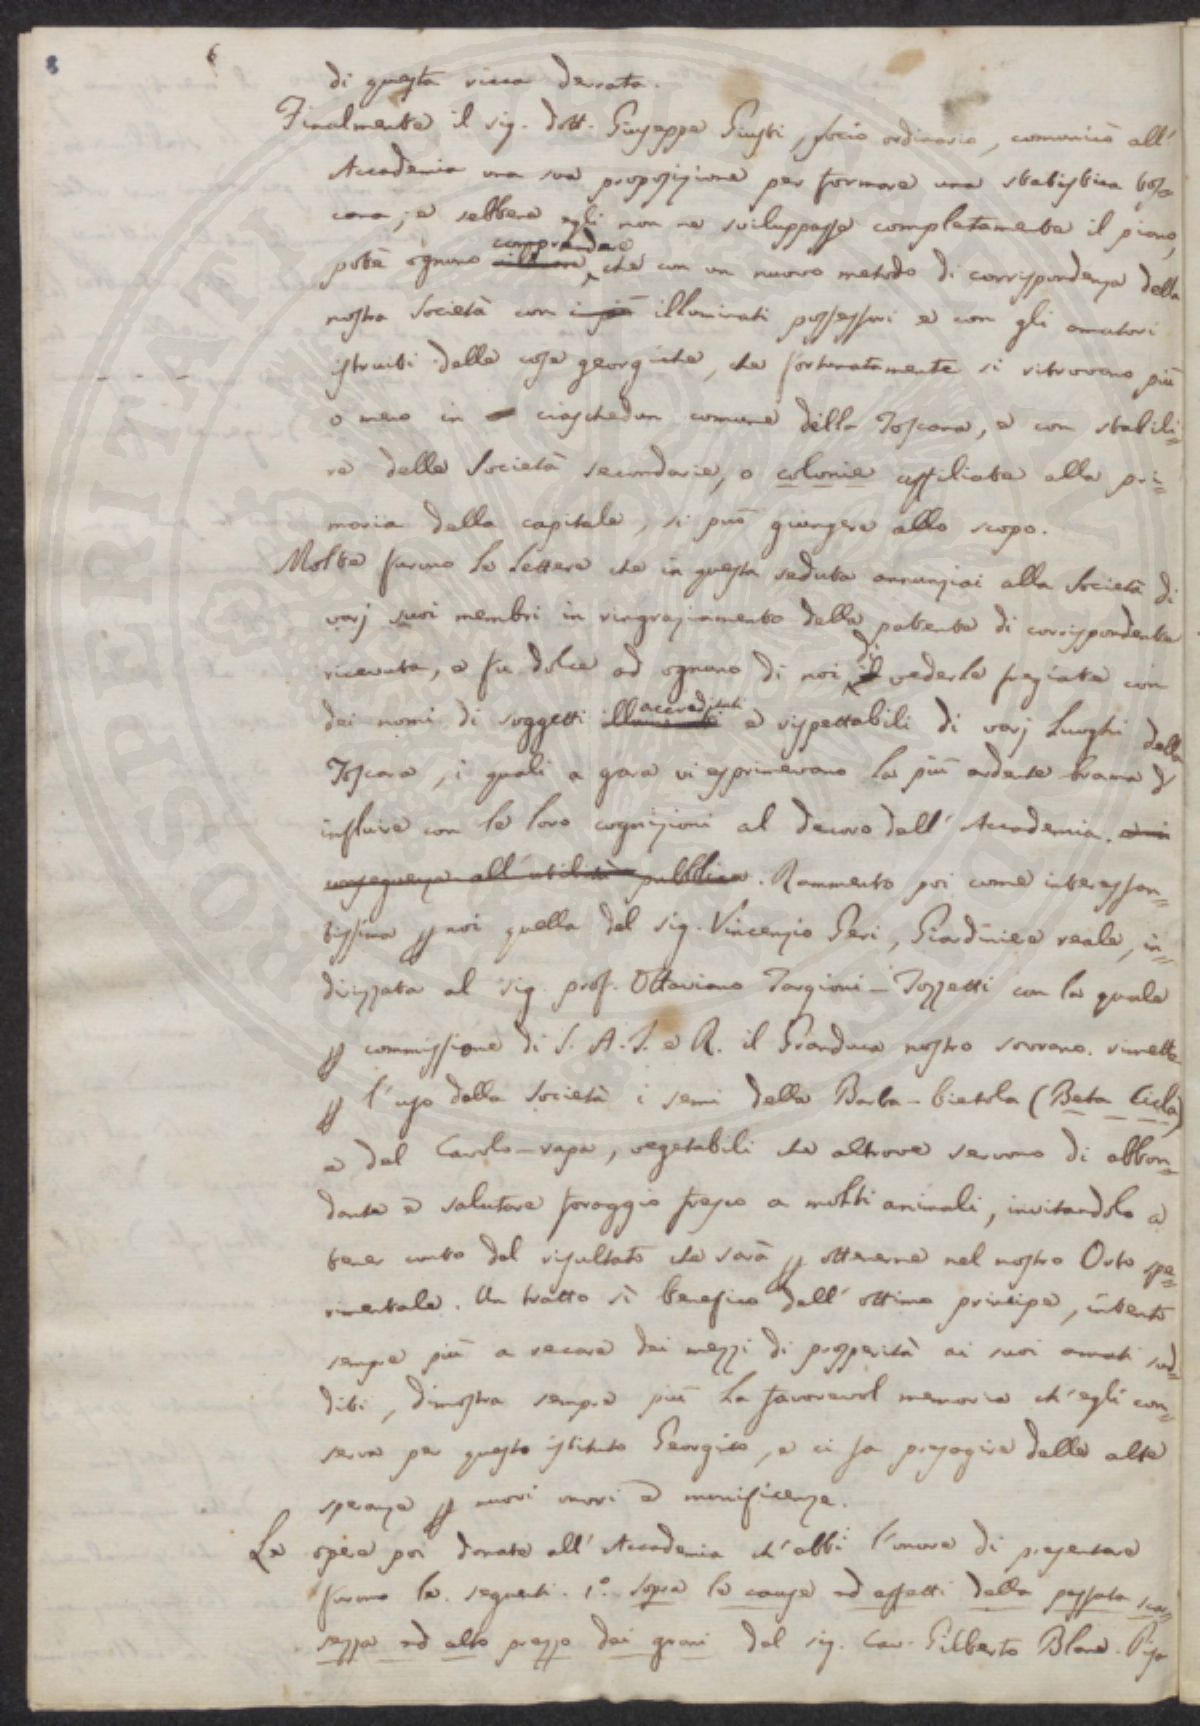 8 6
di questa ricca derrata.
Finalmente il sig. dott. Giuseppe Giusti, socio ordinario, comunicò all'
Accademia una sua proposizione per formare una statistica tos=
cana; e sebbene egli non ne sviluppasse completamente il piano,
comprendere
potè ognuno che con un nuovo metodo di corrispondenza della
nostra Società con i più illuminati possessori e con gli amatori
istruiti delle cose georgiche, che fortunatamente si ritrovano più
o meno in ciaschedun comune della Toscana, e con stabili=
re delle Società secondarie, o colonie affiliate alla pri=
maria della capitale, si può giungere allo scopo.
Molte furono le lettere che in questa seduta annunziai alla Società di
varj suoi membri in ringraziamento della patente di corrispondente
di
ricevuta, e fu dolce ad ognuno di noi il vederle fregiate con
accreditati
dei nomi di soggetti illuminati e rispettabili di varj luoghi della
Toscana, i quali a gara vi esprimevano la più ardente brama d'
influire con le loro cognizioni al decoro dell'Accademia. e in
conseguenza all'utilità pubblica. Rammento poi come interessan=
tissima p noi quella del sig. Vincenzio Geri, Giardiniere reale, in=
dirizzata al sig. prof. Ottaviano Targioni-Tozzetti con la quale
p commissione di S. A. I. e R. il Granduca nostro sovrano. rimette
p l'uso della Società i semi della Barba-bietola (Beta Cicla)
e del Cavolo-rapa, vegetabili che altrove servono di abbon=
dante e salutare foraggio fresco a molti animali, invitandolo a
tener conto del risultato che sarà p ottenerne nel nostro Orto spe=
rimentale. Un tratto sì benefico dell'ottimo principe, intento
sempre più a recare dei mezzi di prosperità ai suoi amati sud=
diti, dimostra sempre più la favorevol memoria ch'egli con=
serva per questo istituto Georgico, e ci fa presagire delle alte
speranze p nuovi onori e munificenze.
Le opere poi donate all'Accademia ch'ebbi l'onore di presentare
furono le seguenti. 1.° Sopra le cause ed effetti della passata scar=
sezza ed alto prezzo dei grani del sig. Cav. Gilberto Blane. Pisa